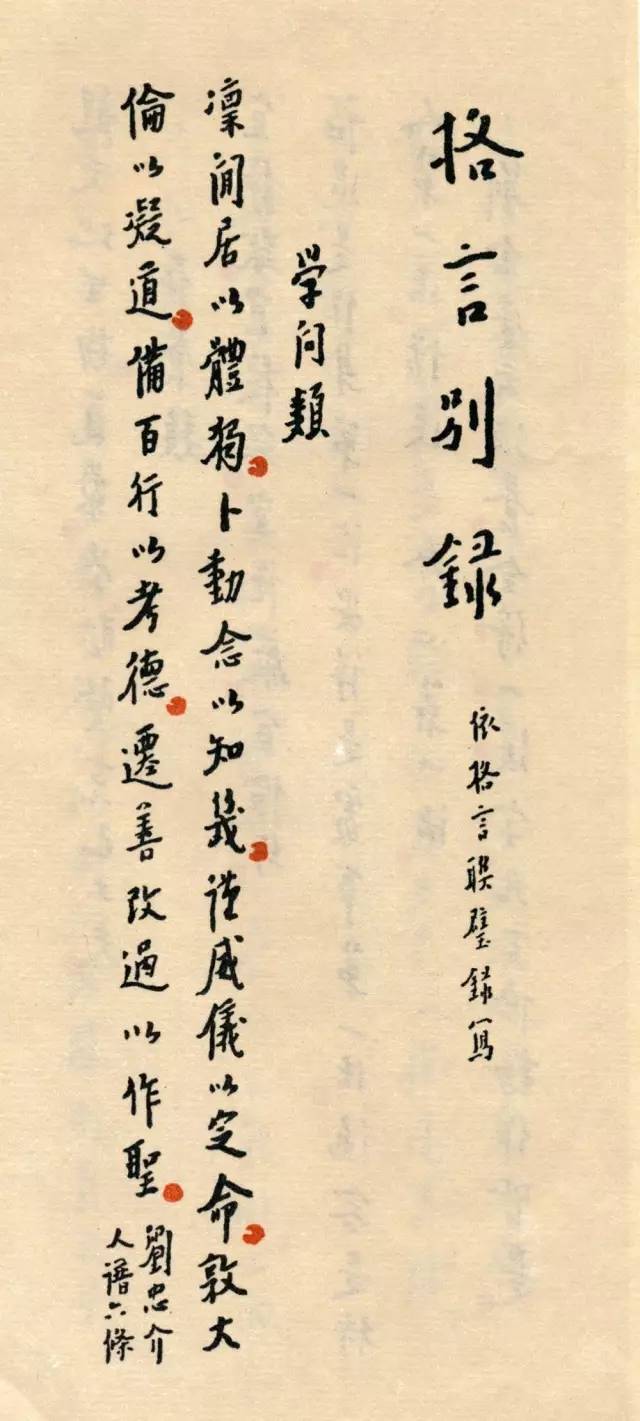 格言别録
依格言聨璧録寫
学问類
凜閒居以體獨。卜動念以知幾。谨威儀以定命。敦大
倫以凝道。備百行以考德。遷善改過以作聖。
劉忠介
人谱六條